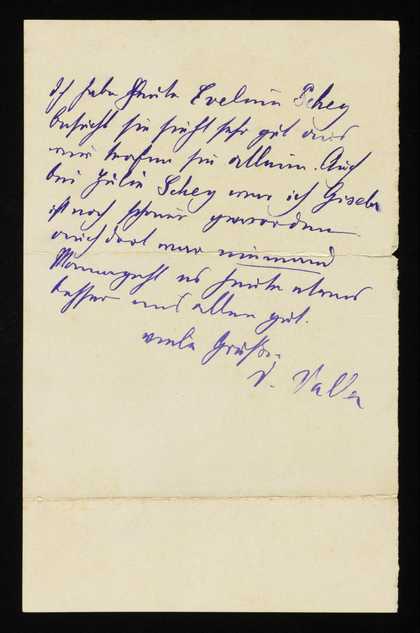 Ich habe heute Evelina Schey
besucht sie sieht sehr gut aus
wir trafen sie allein. Auch
bei Julie Schey war ich Gisela
ist noch schöner geworden.
auch dort war niemand
Mama geht es heute etwas
besser uns allen gut.
viele Grüße
D.